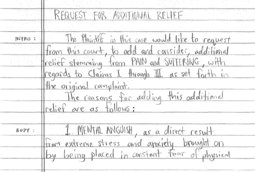 REQUEST FOR ADDITIONAL RELIEF
INTRO: The Plaintiff in this case would like to request
from this court, to add and consider, additional
relief stemming from PAIN and SUFFERING, with
regards to Claims I through III as set forth in
the original complaint.
The reasons for adding this additional
relief are as follows:
BODY: 1. MENTAL ANGUISH, as a direct result
from extreme stress and anxiety brought on
by being placed in constant fear of physical